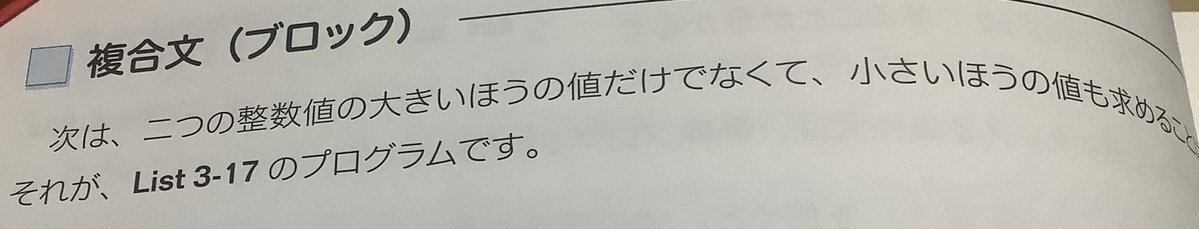 複合文（ブロック）
次は、二つの整数値の大きいほうの値だけでなくて、小さいほうの値も求めること
それが、List 3-17 のプログラムです。